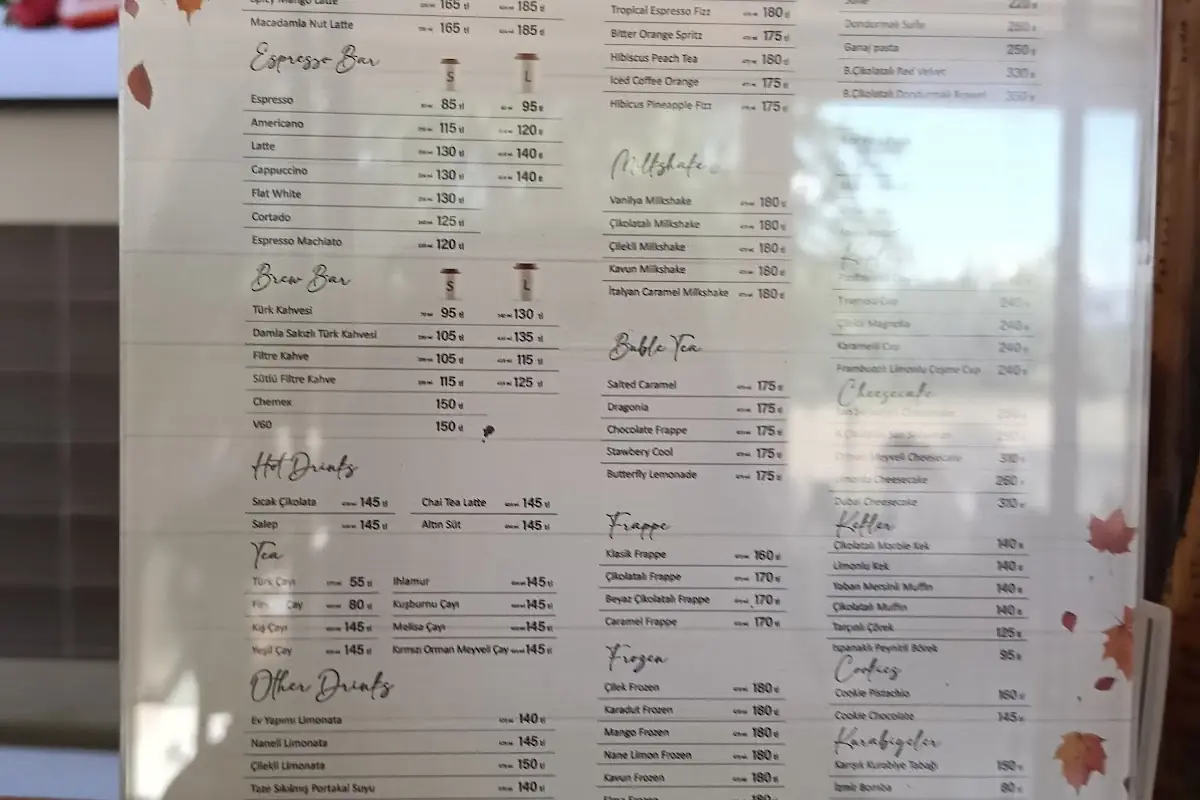 Spicy Mango Latte 165 tl 185 tl
Macadamia Nut Latte 165 tl 185 tl
Espresso Bar S L
Espresso 85 tl 95 tl
Americano 115 tl 120 tl
Latte 130 tl 140 tl
Cappuccino 130 tl 140 tl
Flat White 130 tl
Cortado 125 tl
Espresso Machiato 120 tl
Brew Bar S L
Türk Kahvesi 95 tl 130 tl
Damla Sakızlı Türk Kahvesi 105 tl 135 tl
Filtre Kahve 105 tl 115 tl
Sütlü Filtre Kahve 115 tl 125 tl
Chemex 150 tl
V60 150 tl
Hot Drinks
Sıcak Çikolata 145 tl Chai Tea Latte 145 tl
Salep 145 tl Altın Süt 145 tl
Tea
Türk Çayı 55 tl Ihlamur 145 tl
Çay 80 tl Kuşburnu Çayı 145 tl
Kış Çayı 145 tl Melisa Çayı 145 tl
Yeşil Çay 145 tl Kırmızı Orman Meyveli Çay 145 tl
Other Drinks
Ev Yapımı Limonata 140 tl
Naneli Limonata 145 tl
Çilekli Limonata 150 tl
Taze Sıkılmış Portakal Suyu 140 tl
Tropical Espresso Fizz 180 tl
Bitter Orange Spritz 175 tl
Hibiscus Peach Tea 180 tl
Iced Coffee Orange 175 tl
Hibicus Pineapple Fizz 175 tl
Milkshake
Vanilya Milkshake 180 tl
Çikolatalı Milkshake 180 tl
Çilekli Milkshake 180 tl
Kavun Milkshake 180 tl
İtalyan Caramel Milkshake 180 tl
Buble Tea
Salted Caramel 175 tl
Dragonia 175 tl
Chocolate Frappe 175 tl
Stawbery Cool 175 tl
Butterfly Lemonade 175 tl
Frappe
Klasik Frappe 160 tl
Çikolatalı Frappe 170 tl
Beyaz Çikolatalı Frappe 170 tl
Caramel Frappe 170 tl
Frozen
Çilek Frozen 180 tl
Karadut Frozen 180 tl
Mango Frozen 180 tl
Nane Limon Frozen 180 tl
Kavun Frozen 180 tl
Elma Frozen 180
Dondurmalı Sufle
Ganaj pasta 250 tl
B.Çikolatalı Red Velvet 330 tl
B.Çikolatalı Dondurmalı
240 tl
Magnolia 240 tl
Karamelli Cup 240 tl
Frambuazlı Limonlu Çeşme Cup 240 tl
Cheesecake
Orman Meyveli Cheesecake 310 tl
Limonlu Cheesecake 260 tl
Dubai Cheesecake 310 tl
Kekler
Çikolatalı Marble Kek 140 tl
Limonlu Kek 140 tl
Yaban Mersinli Muffin 140 tl
Çikolatalı Muffin 140 tl
Tarçınlı Çörek 125 tl
Ispanaklı Peynirli Börek 95 tl
Cookies
Cookie Pistachio 160 tl
Cookie Chocolate 145 tl
Kurabiyeler
Karışık Kurabiye Tabağı 150 tl
İzmir Bomba 80 tl